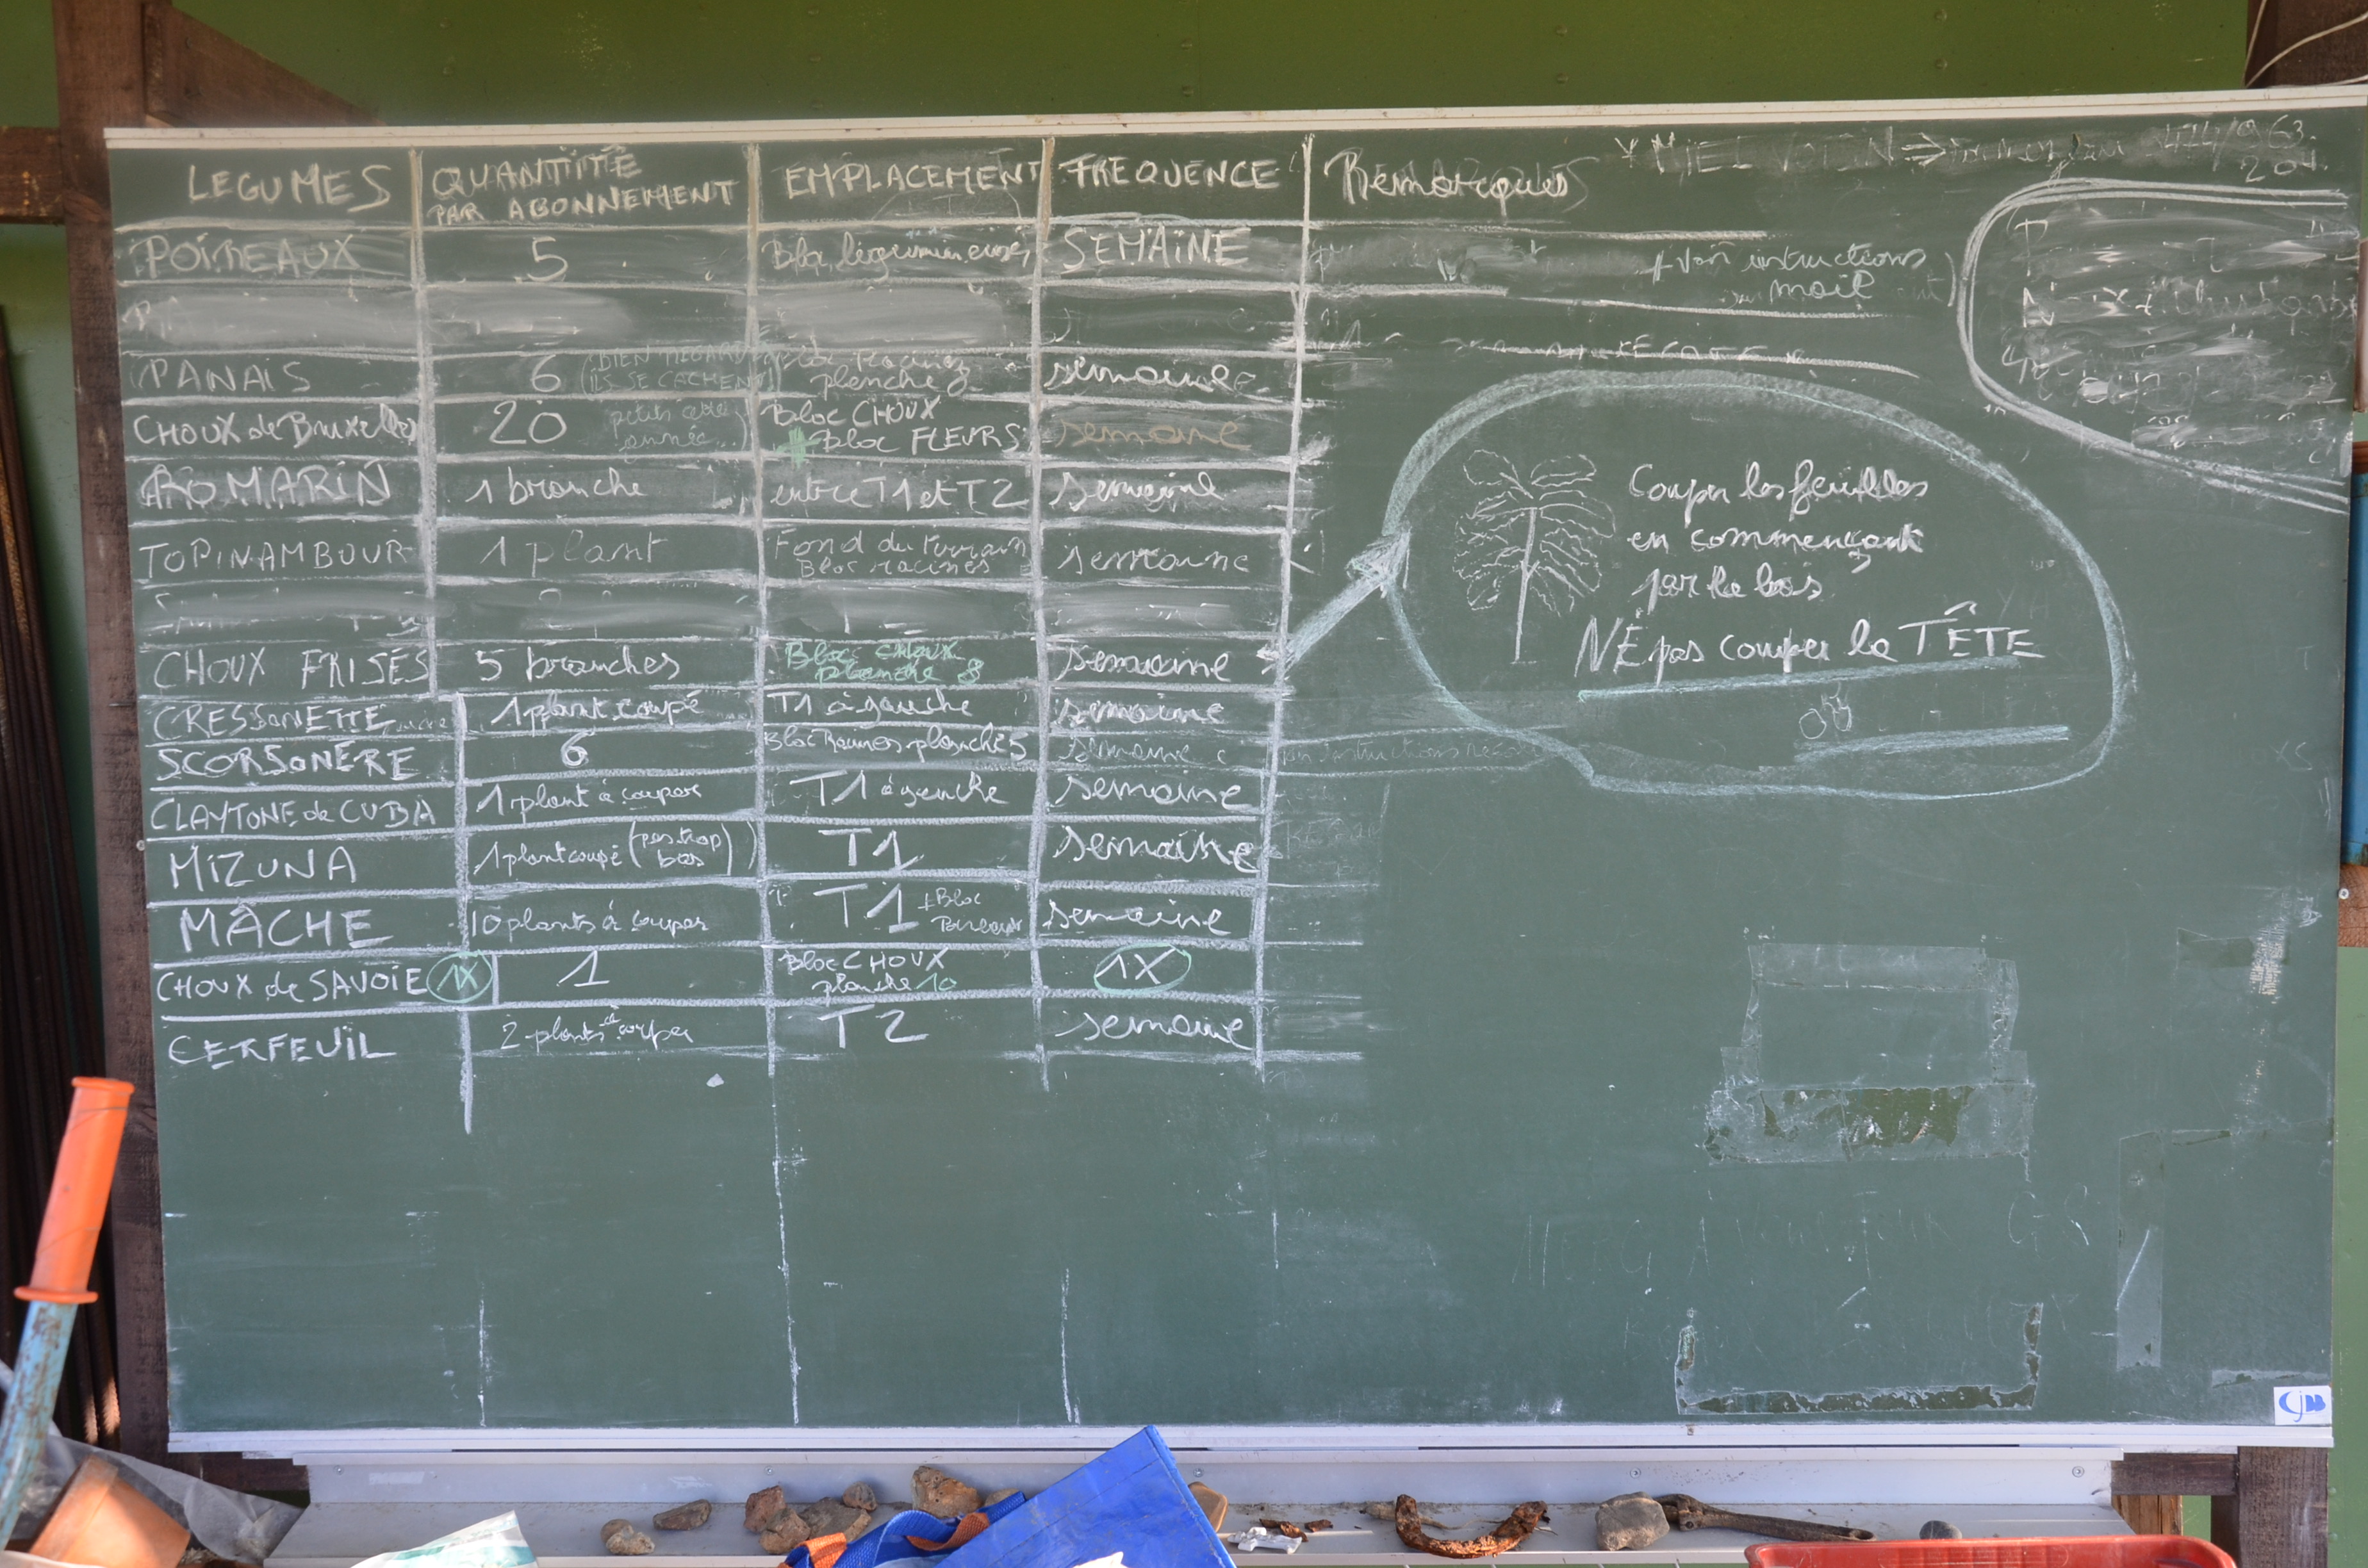 LEGUMES QUANTITÉ PAR ABONNEMENT EMPLACEMENT FREQUENCE Remarques
POIREAUX 5 Bloc légumineuses SEMAINE + Voir instructions mail
PANAIS 6 (BIEN REGARDER ILS SE CACHENT) Bloc Racines planche 8 semaine
CHOUX de Bruxelles 20 petits cette année... Bloc CHOUX + Bloc FLEURS semaine
ROMARIN 1 branche entre T1 et T2 semaine
TOPINAMBOUR 1 plant Fond du terrain Bloc racines semaine
CHOUX FRISÉS 5 branches Bloc choux planche 8 semaine
CRESSONETTE 1 plant coupé T1 à gauche semaine
SCORSONÈRE 6 Bloc Racines planche 5 semaine
CLAYTONE de CUBA 1 plant à couper T1 à gauche semaine
MIZUNA 1 plant coupé (pas trop bas) T1 semaine
MÂCHE 10 plants à couper T1 + Bloc Poireaux semaine
CHOUX de SAVOIE 1X 1 Bloc CHOUX planche 10 1X
CERFEUIL 2 plants à couper T2 semaine
Couper les feuilles
en commençant
par le bas
NE pas couper la TÊTE